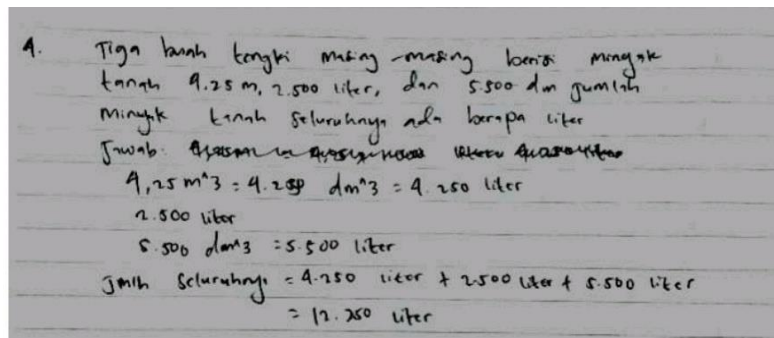 4. Tiga buah tangki masing-masing berisi minyak
tanah 4.25 m, 2.500 liter, dan 5.500 dm jumlah
minyak tanah seluruhnya ada berapa liter
Jawab:
4,25 m^3 = 4.250 dm^3 = 4.250 liter
2.500 liter
5.500 dm^3 = 5.500 liter
Jmlh seluruhnya = 4.250 liter + 2.500 liter + 5.500 liter
= 12.250 liter